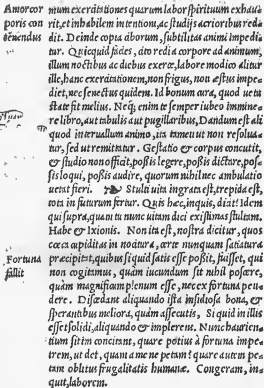 Amor cor
poris con
nium exercitationes quarum labor spiritum exhau-
rit, et inhabilem intentioni, ac studijs acrioribus red-
dit. Deinde copia ciborum, subtilitas animi impedi-
tur. Quicquid facies, cito redi a corpore ad animum,
illum noctibus ac diebus exerce, labore modico alitur
ille, hanc exercitationem, non frigus, non æstus impe-
diet, nec senectus quidem. Id bonum cura, quod uetu
state fit melius. Neq; enim te semper iubeo immine-
re libro, aut tabulis aut pugillaribus, Dandum est ali
quod interuallum animo, ita tamen ut non resolua-
tur, sed ut remittatur. Gestatio & corpus concutit,
& studio non officit, possis legere, possis dictare, pos-
sis loqui, possis audire, quorum nihil nec ambulatio
uetat fieri. Stulti uita ingrata est, trepida est,
tota in futurum fertur. Quis hæc, inquis, dicit? Idem
qui supra, quam tu nunc uitam dici existimas stultam.
Habe & Ixionis. Non ita est, nostra dicitur, quos
cæca cupiditas in nocitura, certe nunquam satiatura
Fortuna
fallit
præcipitat, quibus si quid satis esse posset, fuisset, qui
non cogitamus, quam iucundum sit nihil poscere,
quàm magnificum plenum esse, nec ex fortuna pen-
dere. Discedant aliquando ista insidiosa bona, &
sperantibus meliora, quàm assecutis. Si quid in illis
esset solidi, aliquando & implerent. Nunc haurien-
tium sitim concitant, quare potius à fortuna impe-
trem, ut det, quam a me ne petam? quare autem pe-
tam oblitus fragilitatis humanæ. Congeram, in-
quit, laborem.